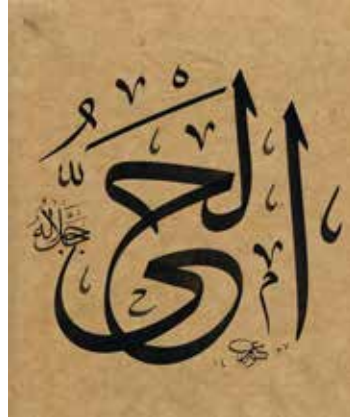 الحي
جل جلاله